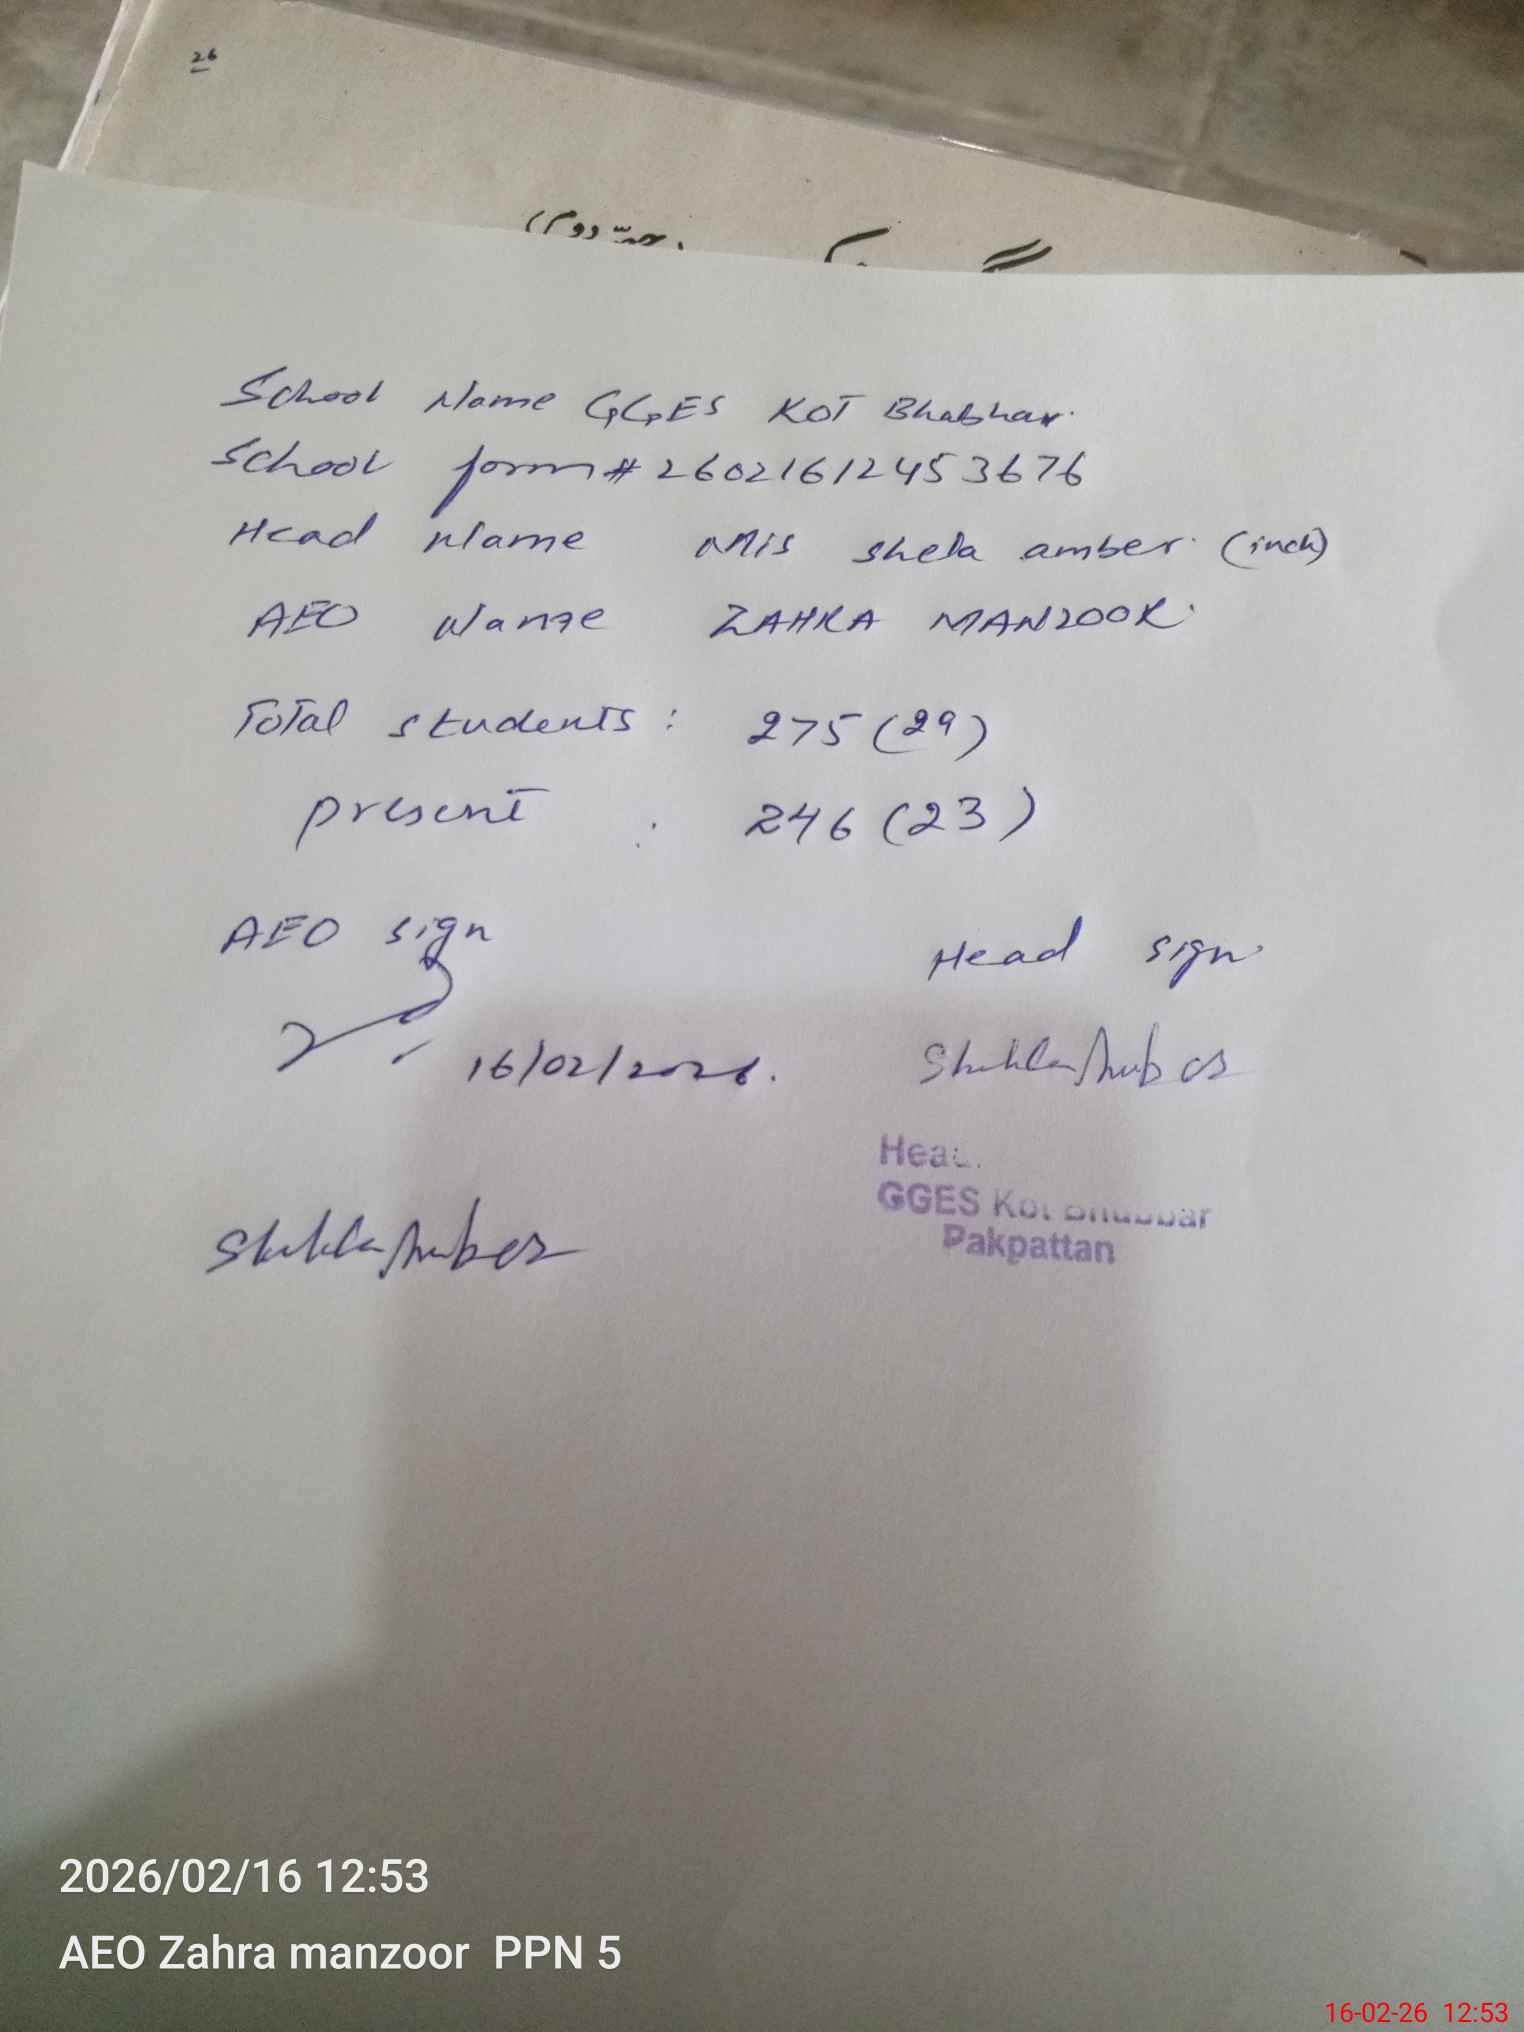 26
حصّہ دوم)
School Name GGES KOT Bhabhar.
School form # 260216122453676
Head Name Mis shela amber. (inch)
AEO Name ZAHRA MANZOOR.
Total students : 275 (29)
present : 246 (23)
AEO sign
Head sign
16/02/2026.
Shehla Amber
Head
GGES Kot Bhubbar
Pakpattan
Shehla Amber
2026/02/16 12:53
AEO Zahra manzoor PPN 5
16-02-26 12:53